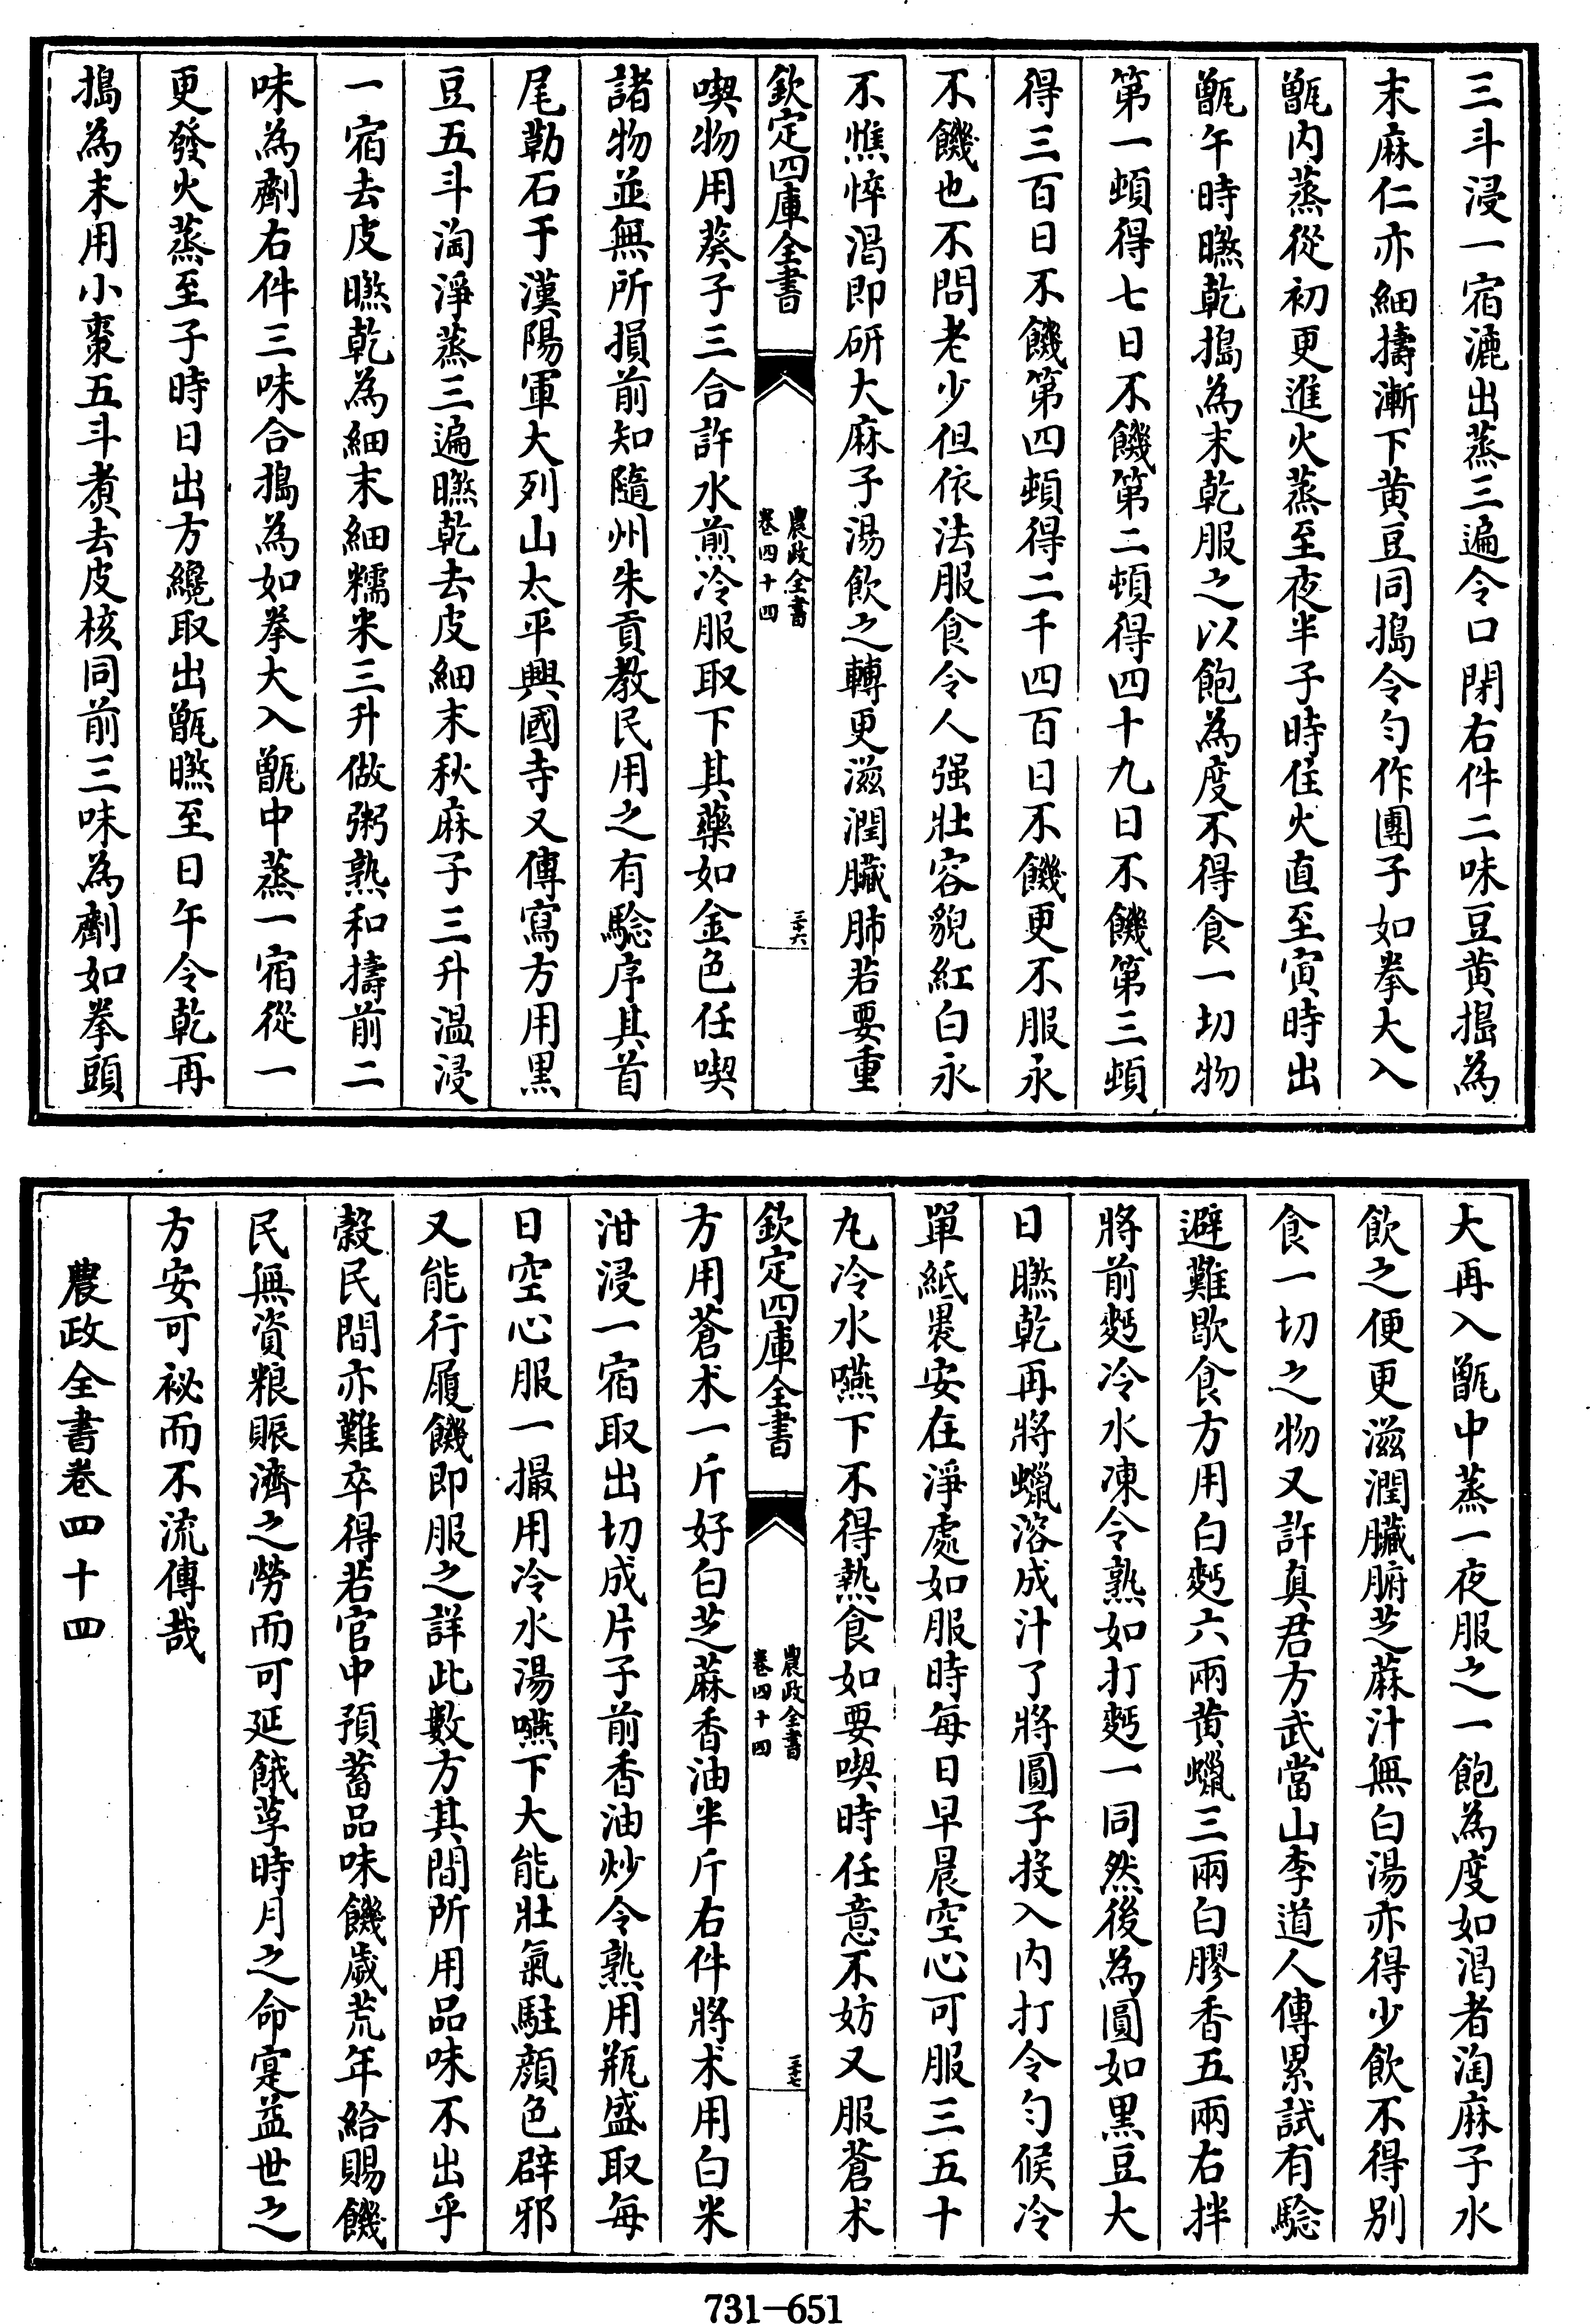 三斗浸一宿漉出蒸三遍令口閉右件二味豆黄搗為
末麻仁亦細擣漸下黄豆同搗令勻作團子如拳大入
甑内蒸從初更進火蒸至夜半子時住火直至寅時出
甑午時㬠乾搗為末乾服之以飽為度不得食一切物
第一頓得七日不饑第二頓得四十九日不饑第三頓
得三百日不饑第四頓得二千四百日不饑更不服永
不饑也不問老少但依法服食令人强壯容貌紅白永
不憔悴渴即研大麻子湯飲之轉更滋潤臟肺若要重
欽定四庫全書
農政全書
卷四十四
三十六
喫物用葵子三合許水煎冷服取下其藥如金色任喫
諸物並無所損前知隨州朱貢教民用之有驗序其首
尾勒石于漢陽軍大列山太平興國寺又傳寫方用黑
豆五斗淘淨蒸三遍㬠乾去皮細末秋麻子三升温浸
一宿去皮㬠乾為細末細糯米三升做粥熟和擣前二
味為劑右件三味合搗為如拳大入甑中蒸一宿從一
更發火蒸至子時日出方纔取出甑㬠至日午令乾再
搗為末用小棗五斗煮去皮核同前三味為劑如拳頭
大再入甑中蒸一夜服之一飽為度如渴者淘麻子水
飲之便更滋潤臟腑芝蔴汁無白湯亦得少飲不得别
食一切之物又許真君方武當山李道人傳累試有驗
避難歇食方用白麪六兩黄蠟三兩白膠香五兩右拌
將前麪冷水凍令熟如打麪一同然後為圓如黑豆大
日㬠乾再將蠟溶成汁了將圓子投入内打令勻候冷
單紙褁安在淨處如服時每日早晨空心可服三五十
丸冷水嚥下不得熱食如要喫時任意不妨又服蒼术
欽定四庫全書
農政全書
卷四十四
三十七
方用蒼术一斤好白芝蔴香油半斤右件將术用白米
泔浸一宿取出切成片子前香油炒令熟用瓶盛取每
日空心服一撮用冷水湯嚥下大能壯氣駐顔色辟邪
又能行履饑即服之詳此數方其間所用品味不出乎
穀民間亦難卒得若官中預蓄品味饑歲荒年給賜饑
民無資粮賑濟之勞而可延餓莩時月之命寔益世之
方安可祕而不流傳哉
農政全書卷四十四
731-651